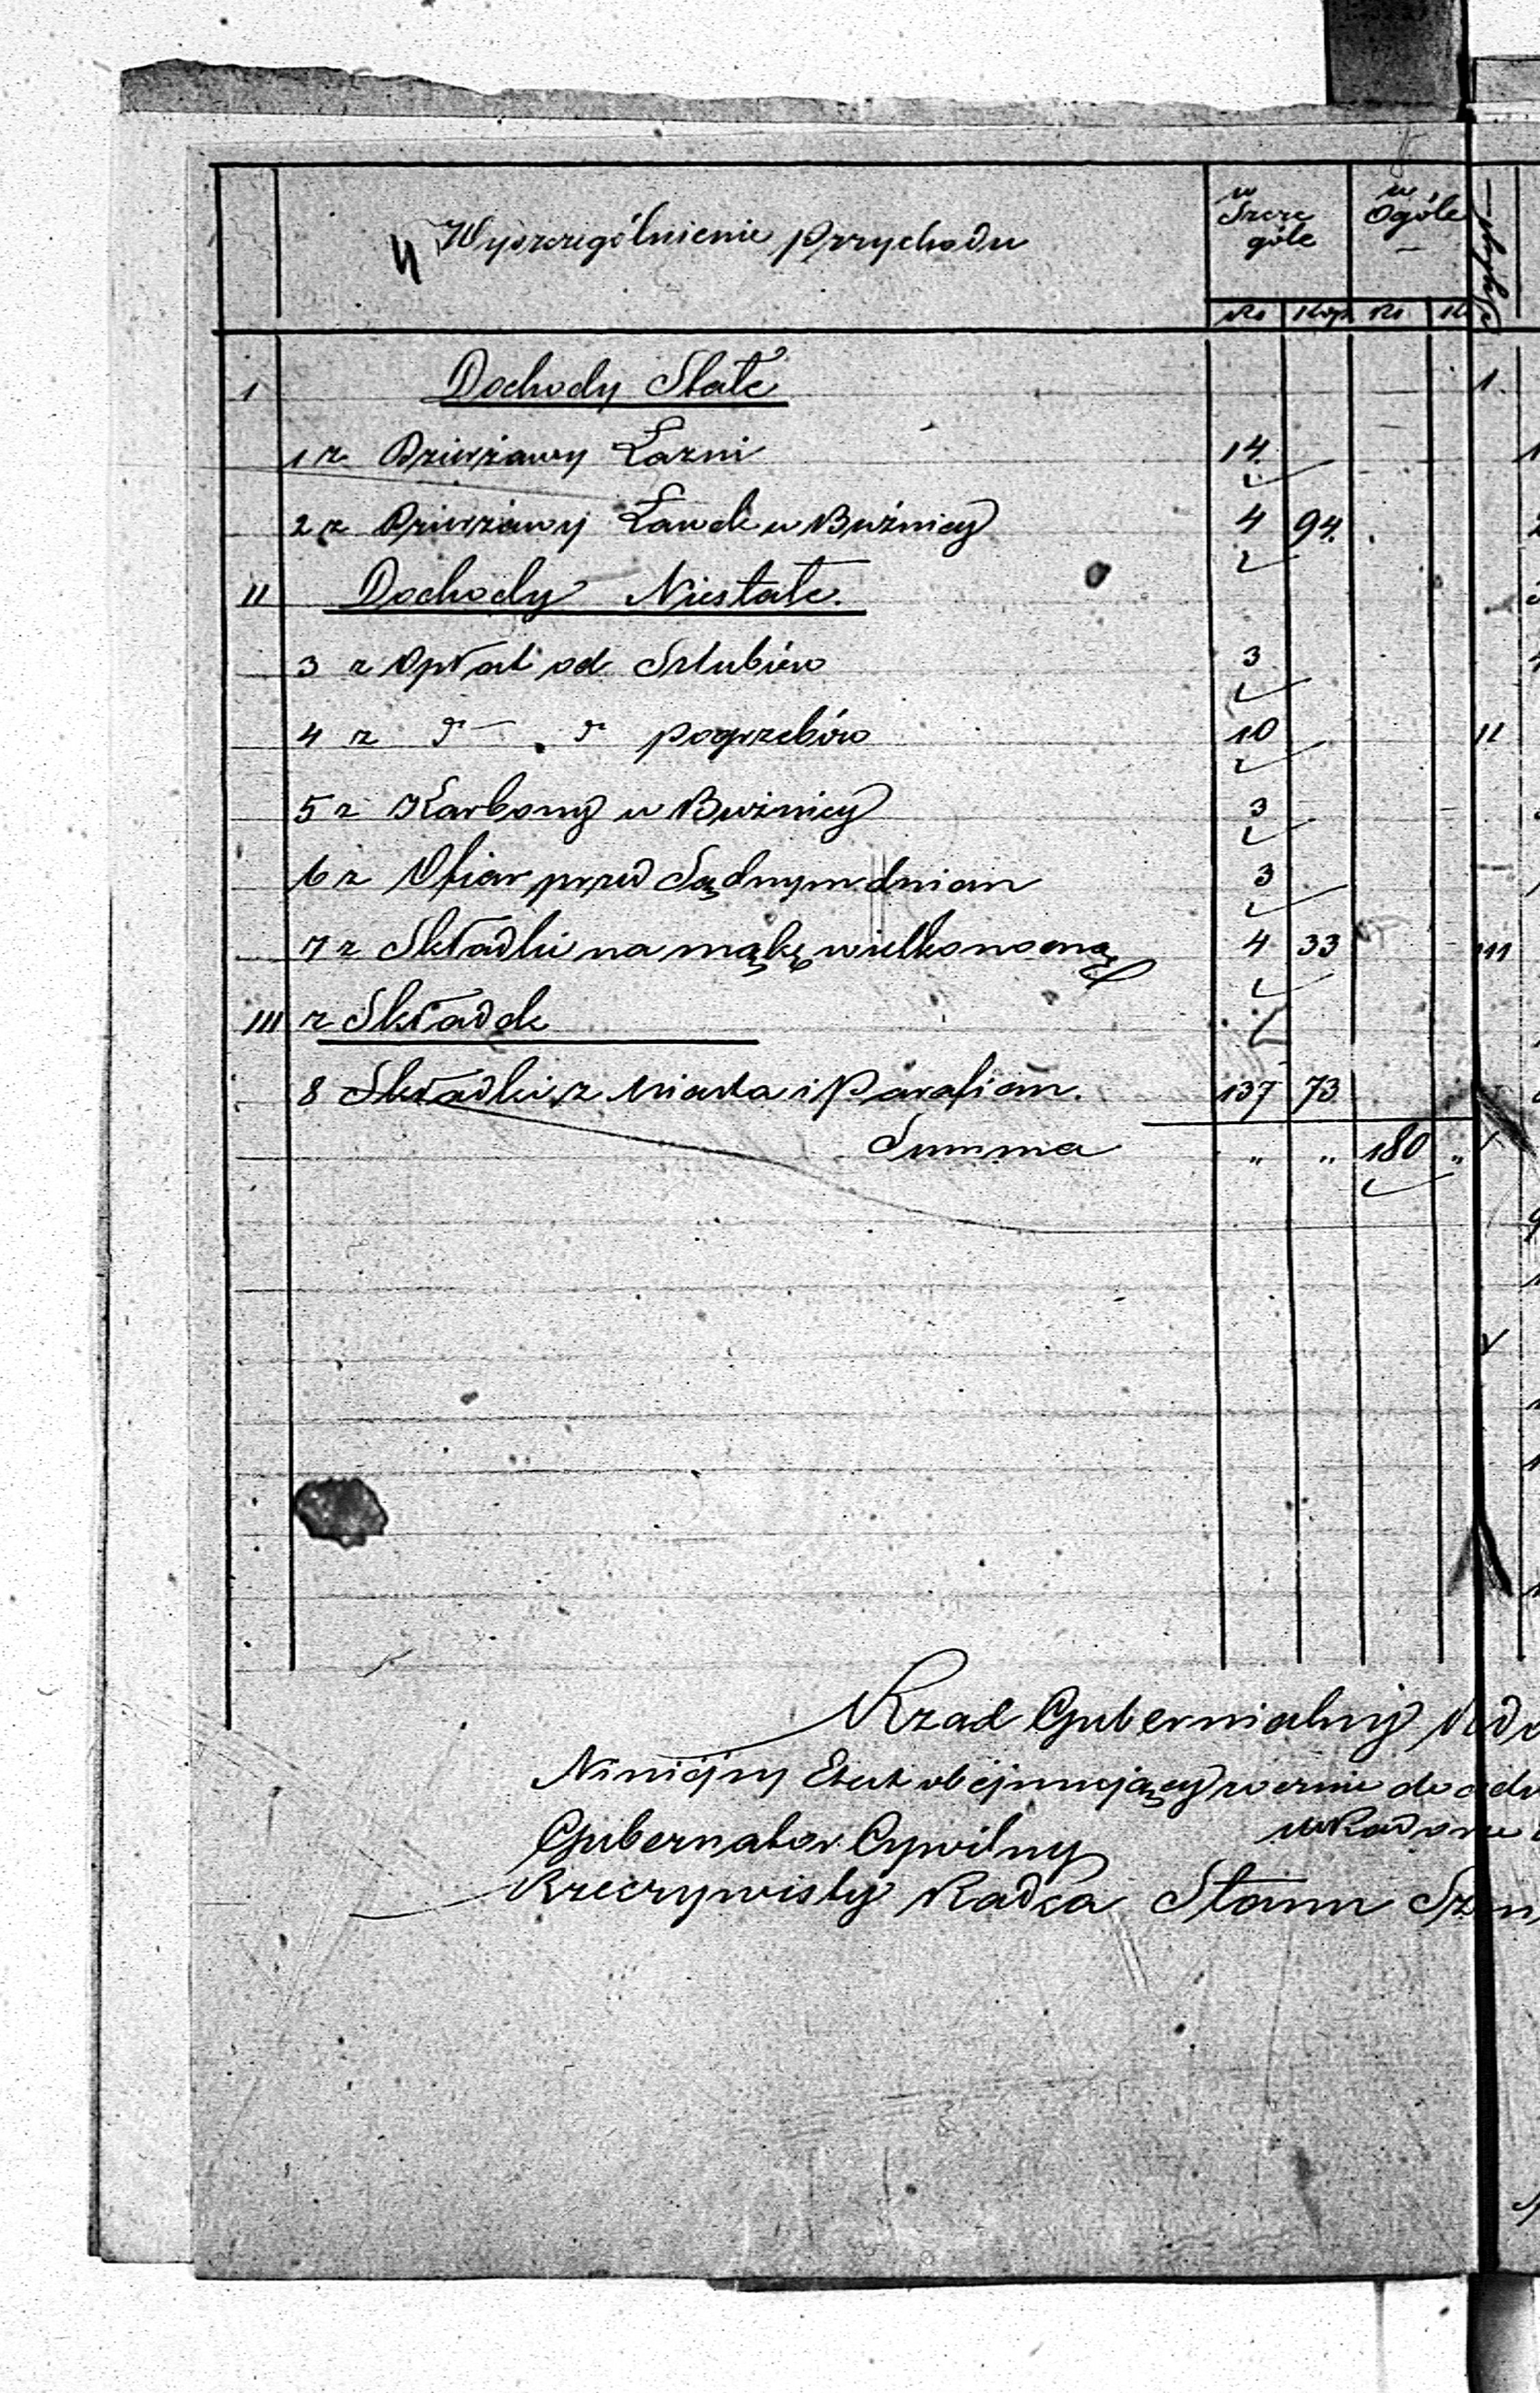 Wyszczególnienie Przychodu
w Szcze góle
w Ogóle
Tytuł
Rs Kop Rs K
1 Dochody Stałe
1 z Dzierżawy Łazni 14
2 z Dzierżawy Ławek w Bużnicy 4 94.
II Dochody Niestałe.
3 z Opłat od Szlubów 3
4 z d° d° pogrzebów 10
5 z Karbony w Bużnicy 3
6 z Ofiar przed Sądnym dniem 3
7 z Składki na mąkę wielkonocną 4 33
III z Składek
8 Składki z Miasta i Parafian. 137 73
Summa " " 180 "
Rząd Gubernialny
Niniejszy Etat obejmujący
Gubernator Cywilny
Rzeczywisty Radca Stanu